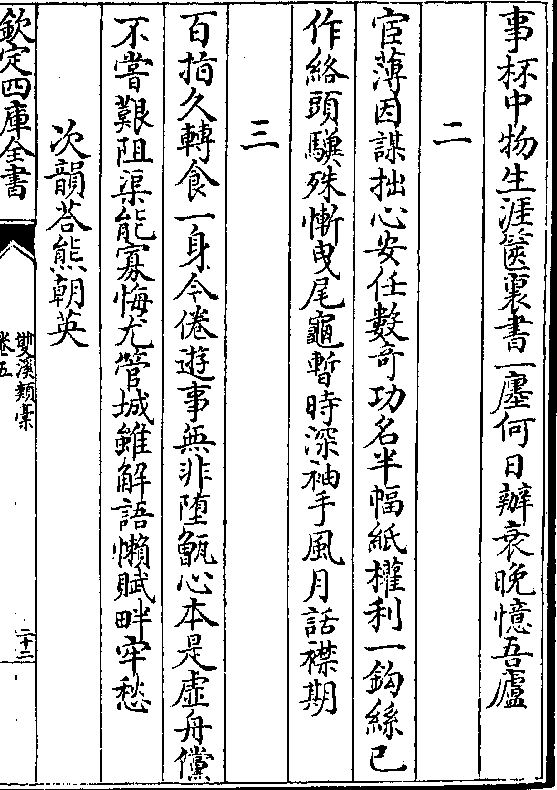 事杯中物生涯篋裏書一廛何日辦衰晚憶吾廬
二
宦薄因謀拙心安任數奇功名半幅紙權利一鈎絲已
作絡頭驥殊慚曳尾龜暫時深袖手風月話襟期
三
百指久轉食一身今倦遊事無非堕甑心本是虛舟儻
不嘗艱阻渠能寡悔尤管城雖解語懶賦畔牢愁
次韻荅熊朝英
欽定四庫全書
雙溪類稾
卷五
二十二